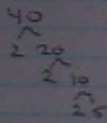 40
2 20
2 10
2 5